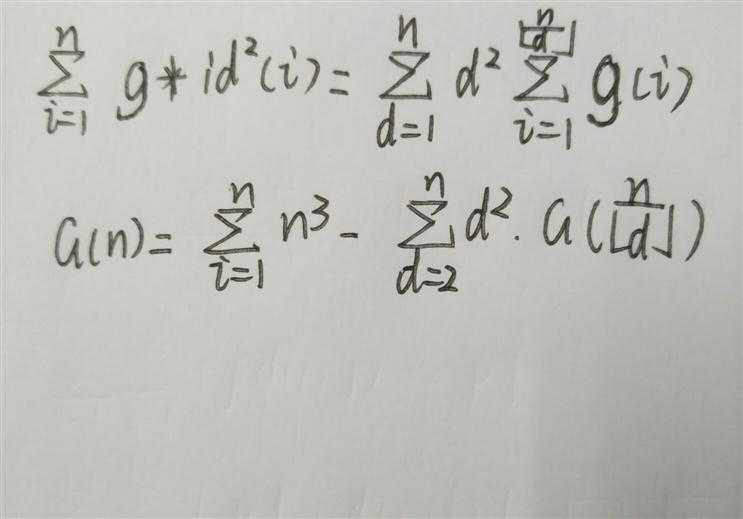 $\sum_{i=1}^{n} g * id^2(i) = \sum_{d=1}^{n} d^2 \sum_{i=1}^{\lfloor \frac{n}{d} \rfloor} g(i)$
$G(n) = \sum_{i=1}^{n} n^3 - \sum_{d=2}^{n} d^2 \cdot G(\lfloor \frac{n}{d} \rfloor)$